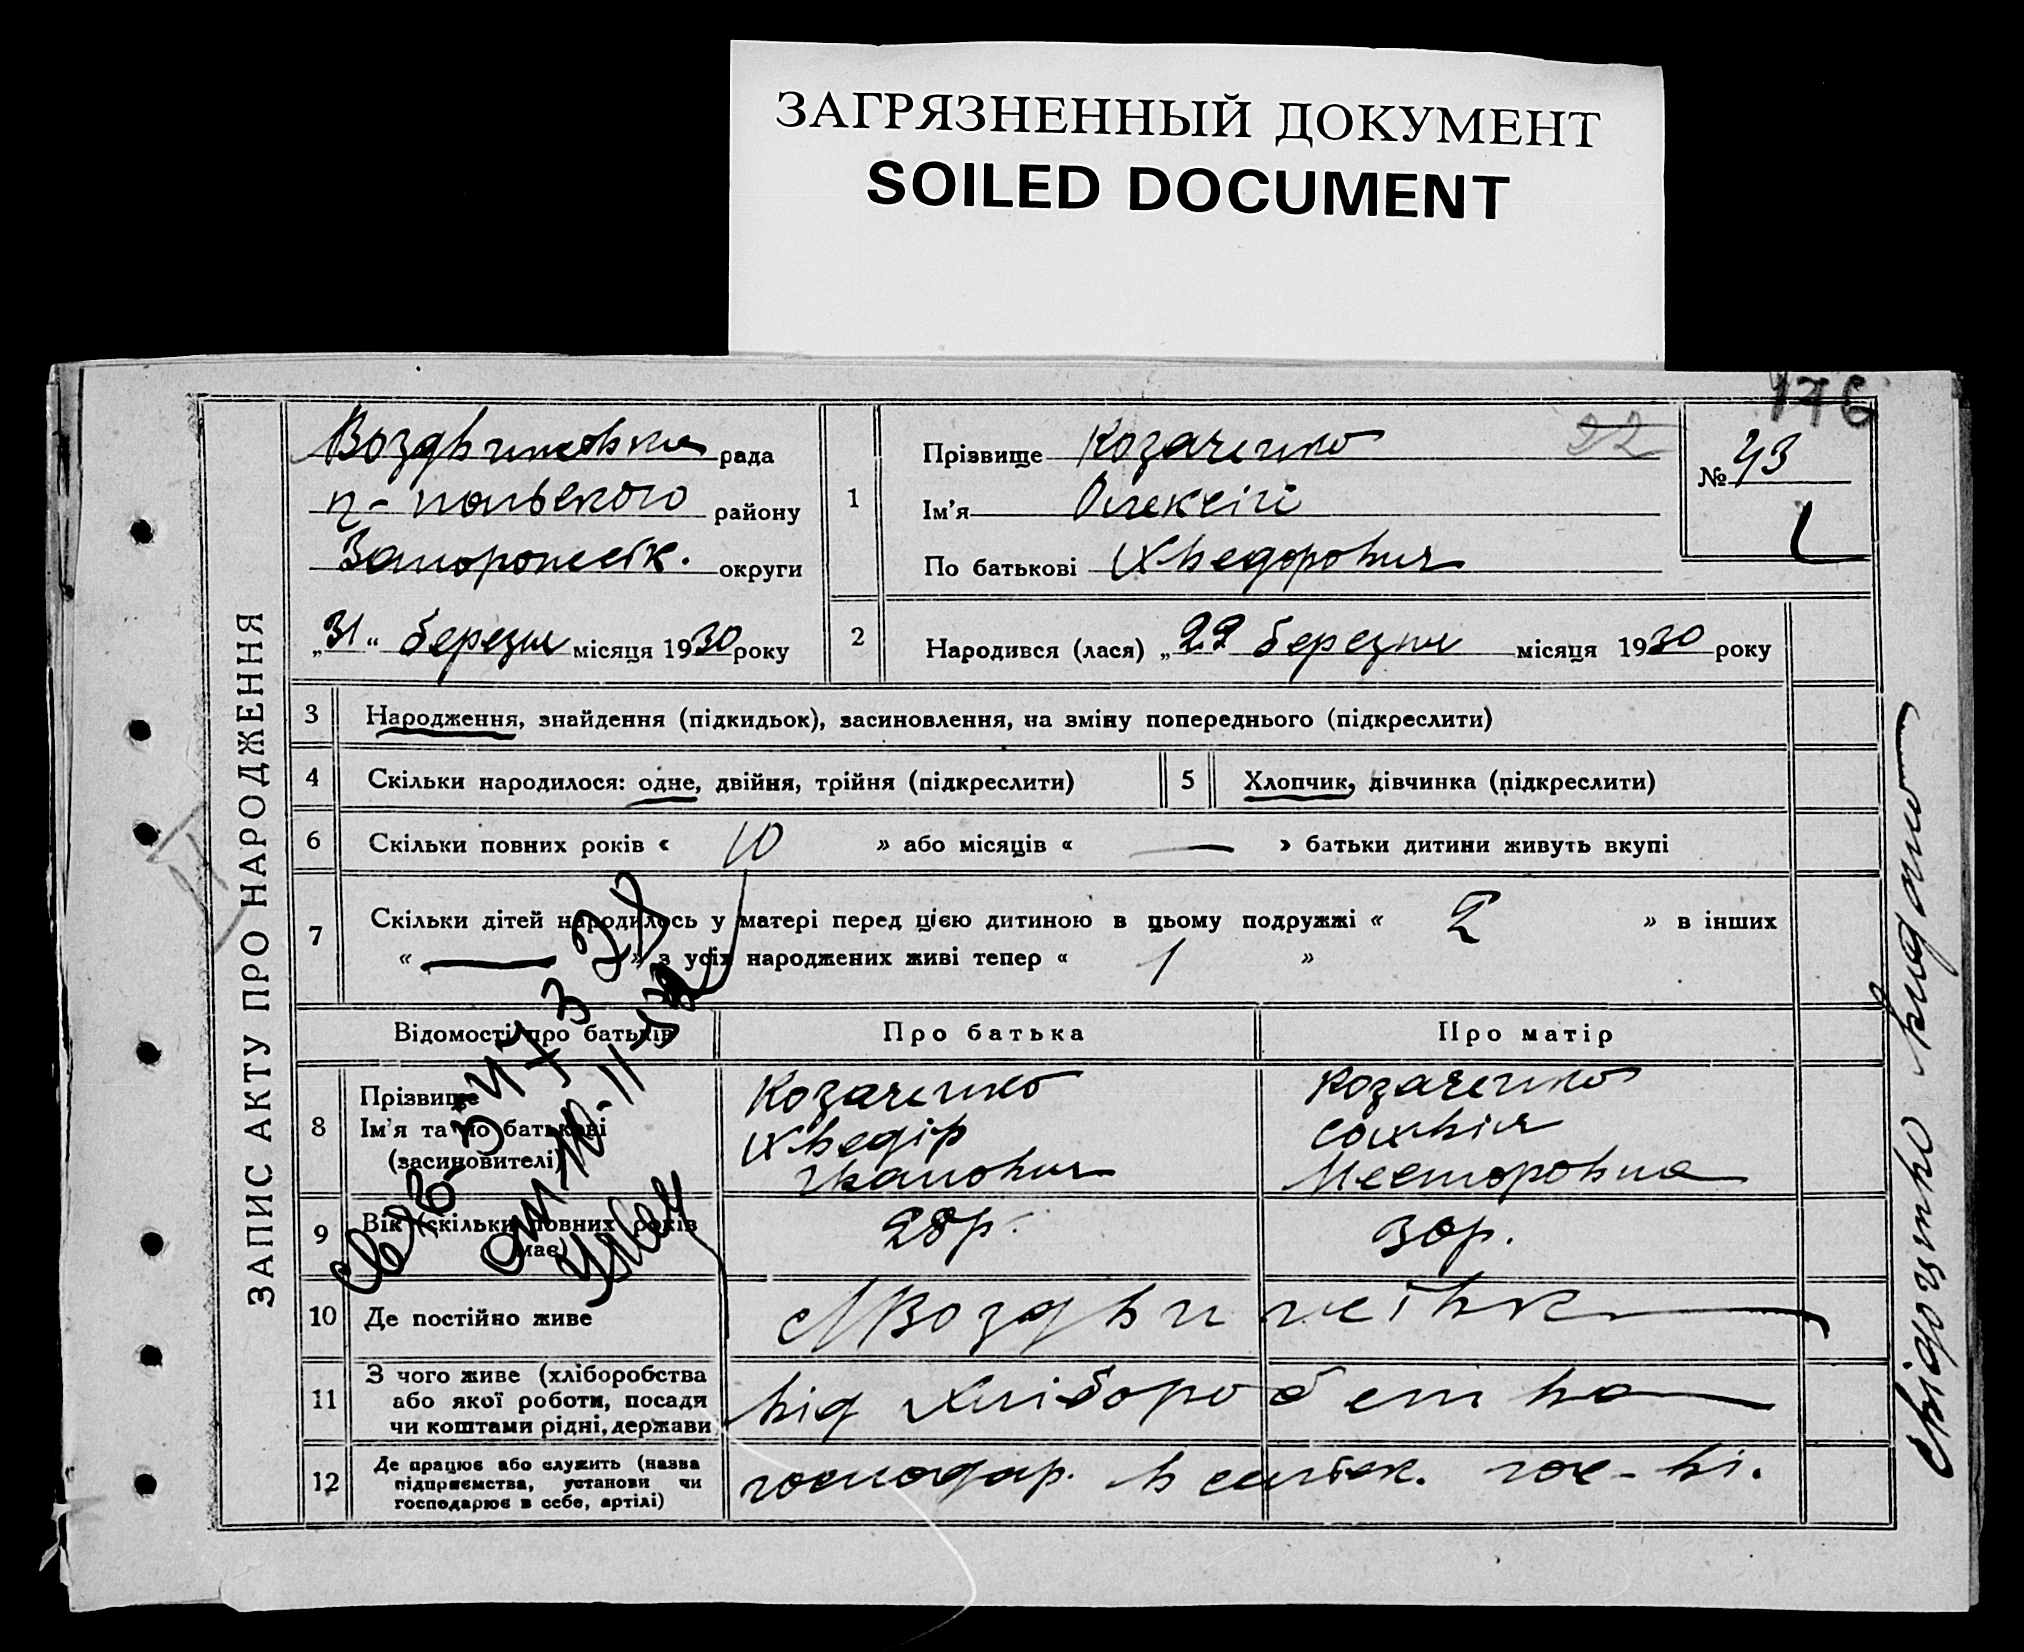 ЗАГРЯЗНЕННЫЙ ДОКУМЕНТ
SOILED DOCUMENT
176
ЗАПИС АКТУ ПРО НАРОДЖЕННЯ
Воздвижовська рада
н-польского району
Запорожськ. округи
„31“ березня місяця 1930 року
1 Прізвище Козаченко
22
Ім'я Олексій
По батькові Хведорович
№ 43
2 Народився (лася) „22 березня місяця 1930 року
3 Народження, знайдення (підкидьок), засиновлення, на зміну попереднього (підкреслити)
4 Скільки народилося: одне, двійня, трійня (підкреслити) 5 Хлопчик, дівчинка (підкреслити)
6 Скільки повних років « 10 » або місяців « — » батьки дитини живуть вкупі
7 Скільки дітей народилось у матері перед цією дитиною в цьому подружжі « 2 » в інших
« — » з усіх народжених живі тепер « 1 »
Відомості про батьків Про батька Про матір
8 Прізвище
Ім'я та по батькові
(засиновителі)
Козаченко
Хведір
Іванович
Козаченко
Сохвія
Несторовна
9 Вік (скільки повних років
має)
28р. 30р.
10 Де постійно живе
с Воздвижівк
11 З чого живе (хліборобства
або якої роботи, посади
чи коштами рідні, держави
від хліборобства
12 Де працює або служить (назва
підприємства, установи чи
господарює в себе, артілі)
господар. в сільськ. гос-ві.
Свідоцтво видано